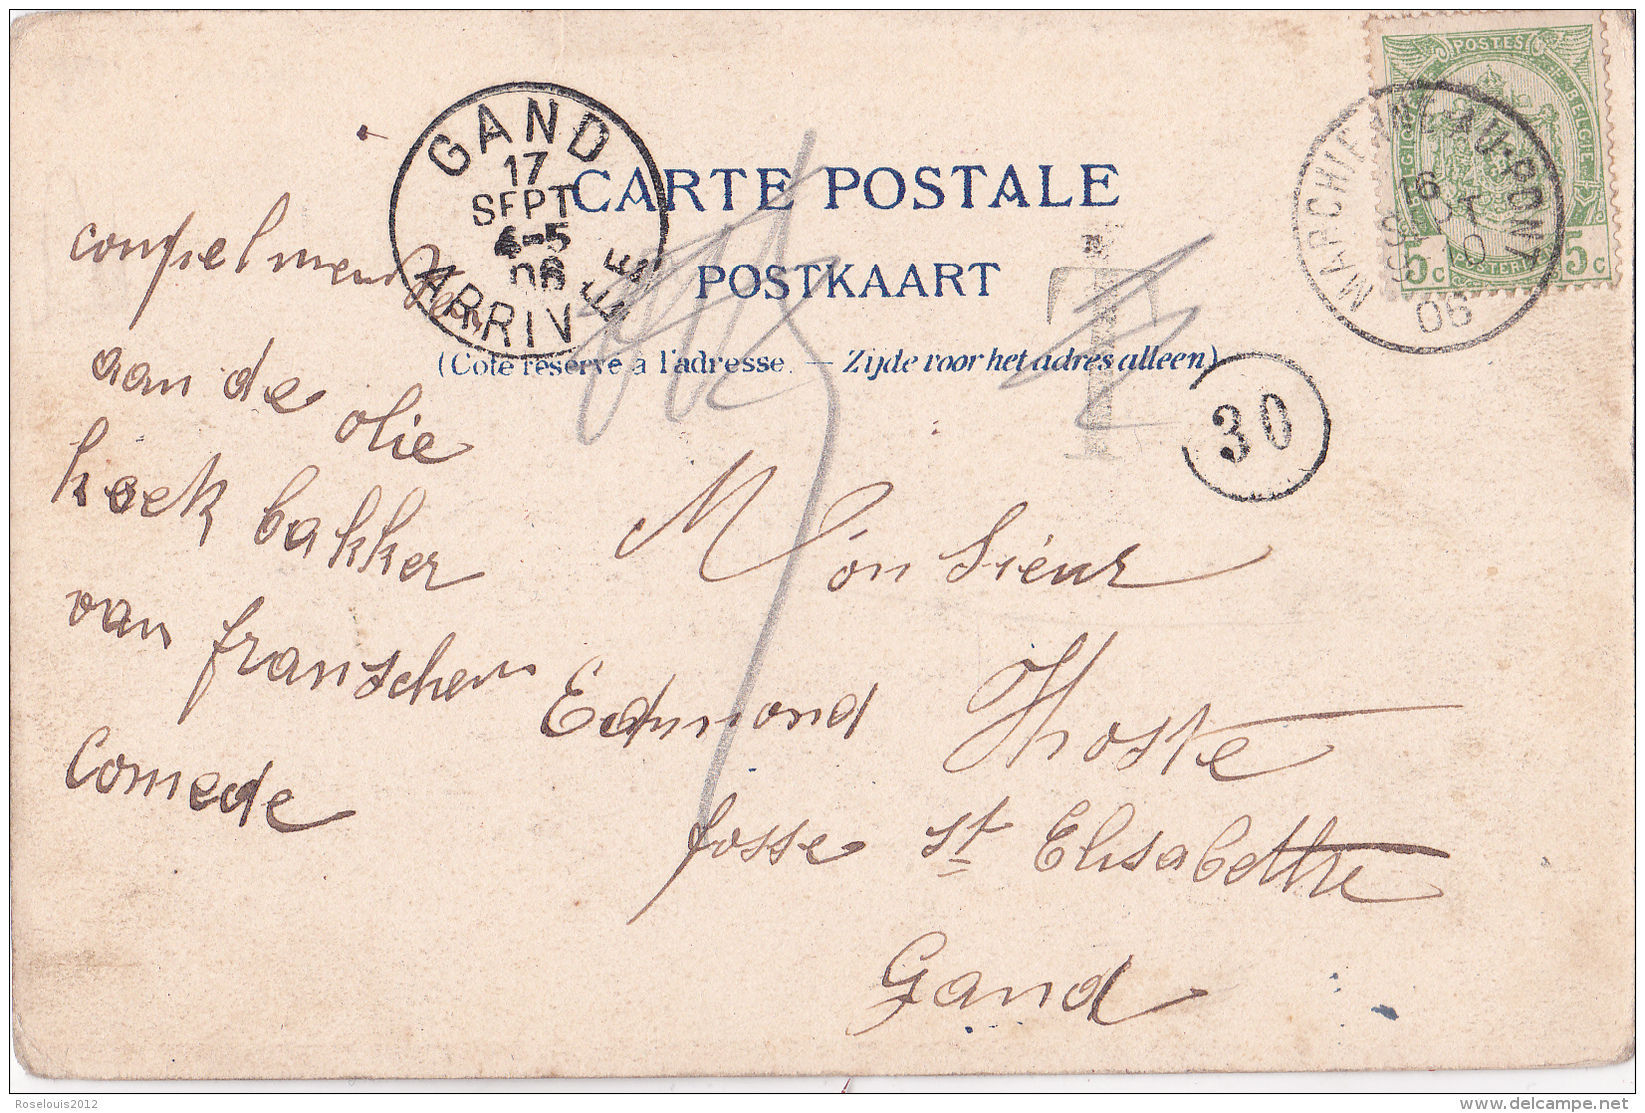 GAND
17
SEPT
4-5
06
ARRIVÉE
CARTE POSTALE
POSTKAART
(Côté réservé à l'adresse. — Zijde voor het adres alleen)
POSTES
BELGIQUE
BELGIË
POSTERIJ
5c 5c
MARCHIENNE-AU-PONT
16
SEPT
06
30
compelmenten
aan de olie
koek bakker
van franschen
Comede
Monsieur
Edmond Hoste
fosse St Elisabethe
Gand
Roselouis2012
delcampe.net